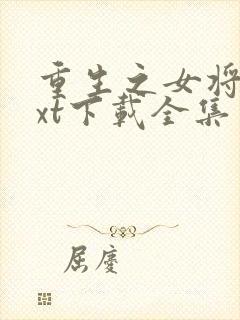 重生之女将
xt下载全集
屈庆